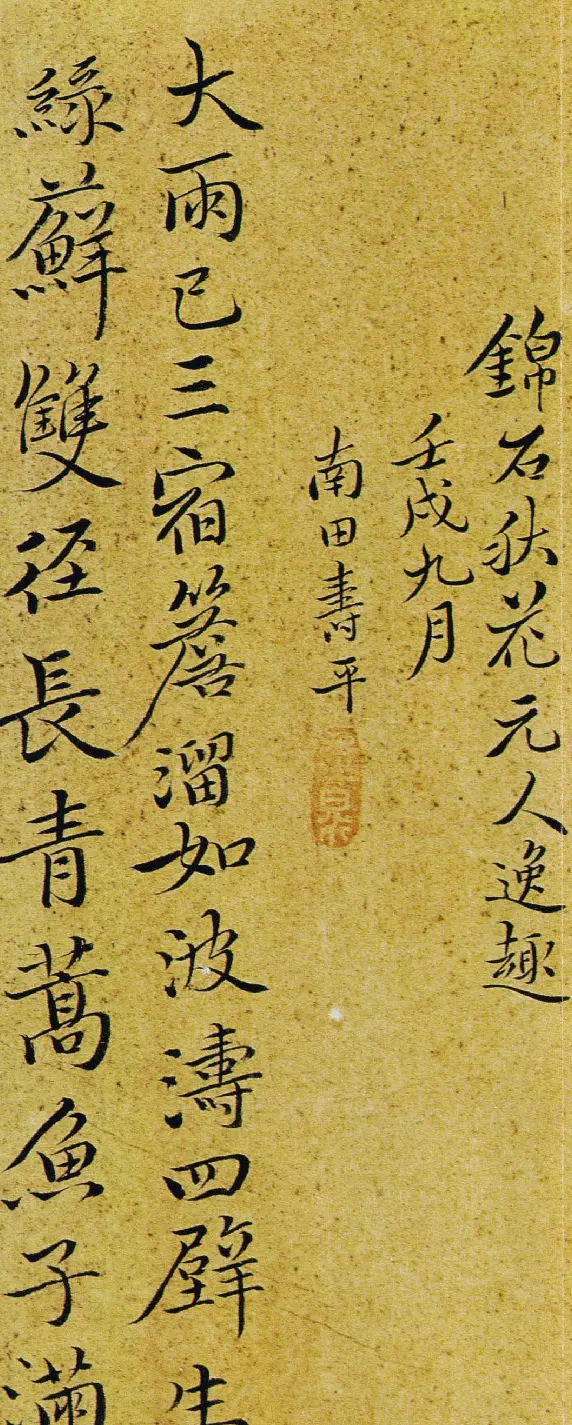 錦石秋花元人逸趣
壬戌九月
南田壽平
大雨已三宿簷溜如波濤四壁生
綠蘚雙徑長青蒿魚子滿